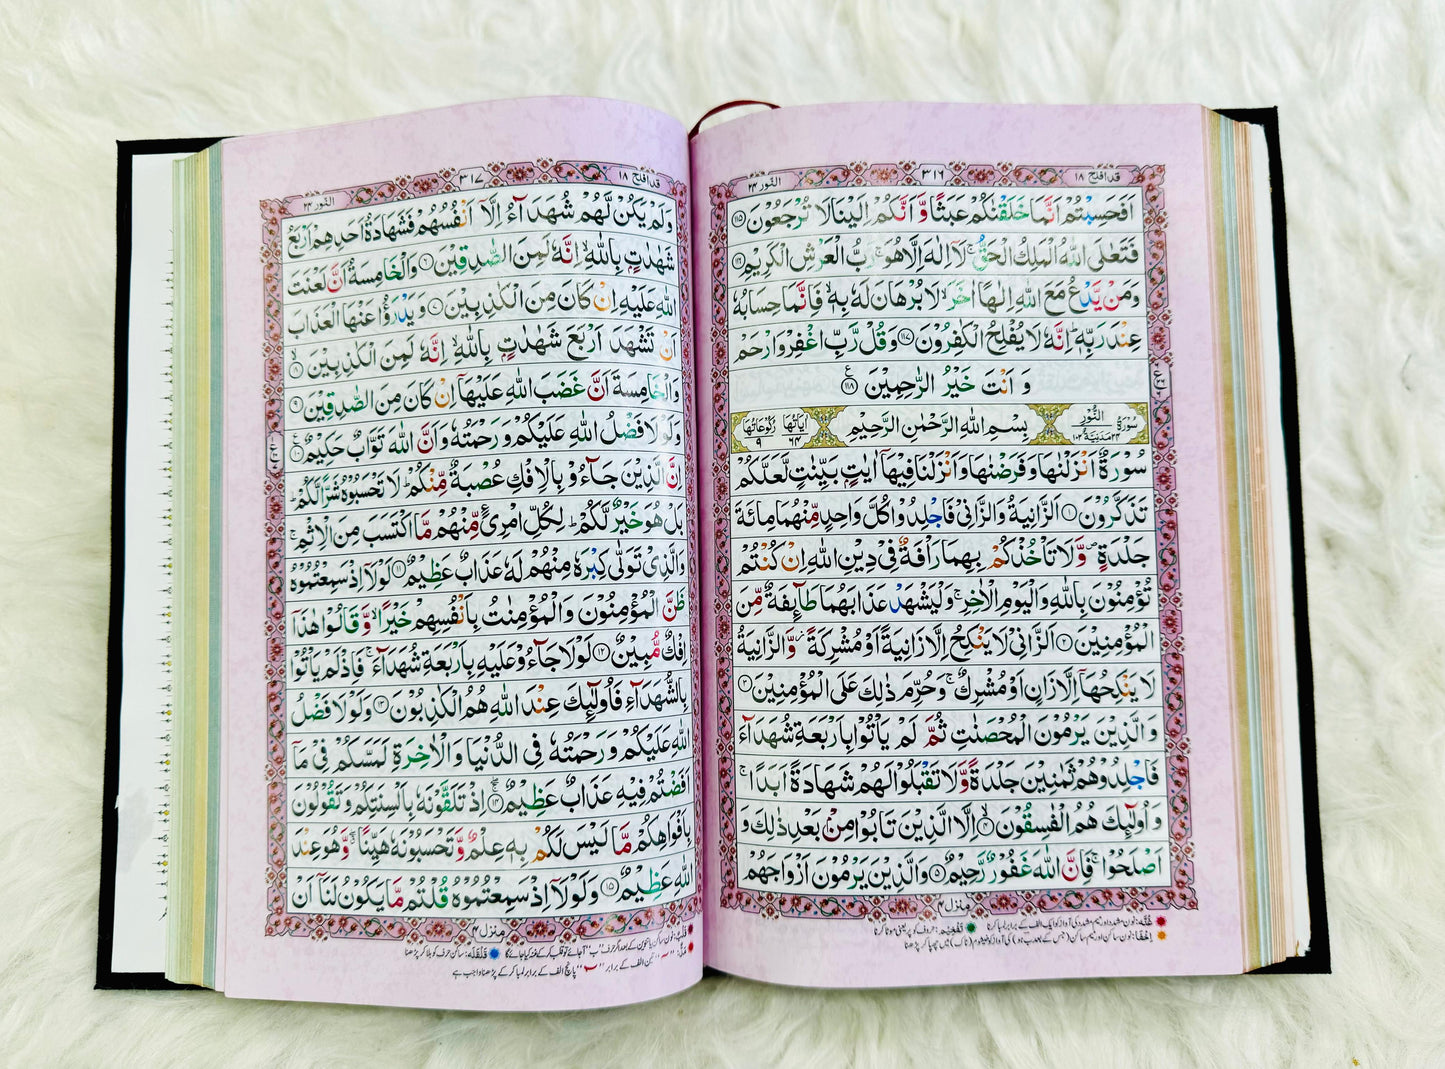 قد افلح ١٨
٣١٦
النور ٢٤
اَفَحَسِبْتُمْ اَنَّمَا خَلَقْنٰكُمْ عَبَثًا وَّ اَنَّكُمْ اِلَيْنَا لَا تُرْجَعُوْنَ ١١٥
فَتَعٰلَى اللّٰهُ الْمَلِكُ الْحَقُّ ۚ لَاۤ اِلٰهَ اِلَّا هُوَ ۚ رَبُّ الْعَرْشِ الْكَرِيْمِ ١١٦
وَمَنْ يَّدْعُ مَعَ اللّٰهِ اِلٰهًا اٰخَرَ ۙ لَا بُرْهَانَ لَهٗ بِهٖ ۙ فَاِنَّمَا حِسَابُهٗ
عِنْدَ رَبِّهٖ ؕ اِنَّهٗ لَا يُفْلِحُ الْكٰفِرُوْنَ ١١٧ وَقُلْ رَّبِّ اغْفِرْ وَارْحَمْ
وَ اَنْتَ خَيْرُ الرّٰحِمِيْنَ ١١٨
سُوْرَةُ النُّوْرِ ٢٤ مَدَنِيَّةٌ ١٠٢
بِسْمِ اللّٰهِ الرَّحْمٰنِ الرَّحِيْمِ
اٰيَاتُهَا ٦٤ رُكُوْعَاتُهَا ٩
سُوْرَةٌ اَنْزَلْنٰهَا وَفَرَضْنٰهَا وَاَنْزَلْنَا فِيْهَاۤ اٰيٰتٍۭ بَيِّنٰتٍ لَّعَلَّكُمْ
تَذَكَّرُوْنَ ١ اَلزَّانِيَةُ وَالزَّانِيْ فَاجْلِدُوْا كُلَّ وَاحِدٍ مِّنْهُمَا مِائَةَ
جَلْدَةٍ ۪ وَّلَا تَاْخُذْكُمْ بِهِمَا رَاْفَةٌ فِيْ دِيْنِ اللّٰهِ اِنْ كُنْتُمْ
تُؤْمِنُوْنَ بِاللّٰهِ وَالْيَوْمِ الْاٰخِرِ ۚ وَلْيَشْهَدْ عَذَابَهُمَا طَآئِفَةٌ مِّنَ
الْمُؤْمِنِيْنَ ٢ اَلزَّانِيْ لَا يَنْكِحُ اِلَّا زَانِيَةً اَوْ مُشْرِكَةً ؗ وَّالزَّانِيَةُ
لَا يَنْكِحُهَاۤ اِلَّا زَانٍ اَوْ مُشْرِكٌ ۚ وَحُرِّمَ ذٰلِكَ عَلَى الْمُؤْمِنِيْنَ ٣
وَالَّذِيْنَ يَرْمُوْنَ الْمُحْصَنٰتِ ثُمَّ لَمْ يَاْتُوْا بِاَرْبَعَةِ شُهَدَآءَ
فَاجْلِدُوْهُمْ ثَمٰنِيْنَ جَلْدَةً وَّلَا تَقْبَلُوْا لَهُمْ شَهَادَةً اَبَدًا ۚ
وَاُولٰٓئِكَ هُمُ الْفٰسِقُوْنَ ٤ اِلَّا الَّذِيْنَ تَابُوْا مِنْۢ بَعْدِ ذٰلِكَ وَ
اَصْلَحُوْا ۚ فَاِنَّ اللّٰهَ غَفُوْرٌ رَّحِيْمٌ ٥ وَالَّذِيْنَ يَرْمُوْنَ اَزْوَاجَهُمْ
منزل ٤
قد افلح ١٨
٣١٧
النور ٢٤
وَلَمْ يَكُنْ لَّهُمْ شُهَدَآءُ اِلَّاۤ اَنْفُسُهُمْ فَشَهَادَةُ اَحَدِهِمْ اَرْبَعُ
شَهٰدٰتٍۭ بِاللّٰهِ ۙ اِنَّهٗ لَمِنَ الصّٰدِقِيْنَ ٦ وَالْخَامِسَةُ اَنَّ لَعْنَتَ
اللّٰهِ عَلَيْهِ اِنْ كَانَ مِنَ الْكٰذِبِيْنَ ٧ وَيَدْرَؤُا عَنْهَا الْعَذَابَ
اَنْ تَشْهَدَ اَرْبَعَ شَهٰدٰتٍۭ بِاللّٰهِ ۙ اِنَّهٗ لَمِنَ الْكٰذِبِيْنَ ٨
وَالْخَامِسَةَ اَنَّ غَضَبَ اللّٰهِ عَلَيْهَاۤ اِنْ كَانَ مِنَ الصّٰدِقِيْنَ ٩
وَلَوْلَا فَضْلُ اللّٰهِ عَلَيْكُمْ وَرَحْمَتُهٗ وَاَنَّ اللّٰهَ تَوَّابٌ حَكِيْمٌ ١٠
اِنَّ الَّذِيْنَ جَآءُوْ بِالْاِفْكِ عُصْبَةٌ مِّنْكُمْ ؕ لَا تَحْسَبُوْهُ شَرًّا لَّكُمْ ؕ
بَلْ هُوَ خَيْرٌ لَّكُمْ ؕ لِكُلِّ امْرِئٍ مِّنْهُمْ مَّا اكْتَسَبَ مِنَ الْاِثْمِ ۚ
وَالَّذِيْ تَوَلّٰى كِبْرَهٗ مِنْهُمْ لَهٗ عَذَابٌ عَظِيْمٌ ١١ لَوْلَاۤ اِذْ سَمِعْتُمُوْهُ
ظَنَّ الْمُؤْمِنُوْنَ وَالْمُؤْمِنٰتُ بِاَنْفُسِهِمْ خَيْرًا ۙ وَّقَالُوْا هٰذَاۤ
اِفْكٌ مُّبِيْنٌ ١٢ لَوْلَا جَآءُوْ عَلَيْهِ بِاَرْبَعَةِ شُهَدَآءَ ۚ فَاِذْ لَمْ يَاْتُوْا
بِالشُّهَدَآءِ فَاُولٰٓئِكَ عِنْدَ اللّٰهِ هُمُ الْكٰذِبُوْنَ ١٣ وَلَوْلَا فَضْلُ
اللّٰهِ عَلَيْكُمْ وَرَحْمَتُهٗ فِي الدُّنْيَا وَالْاٰخِرَةِ لَمَسَّكُمْ فِيْ مَاۤ
اَفَضْتُمْ فِيْهِ عَذَابٌ عَظِيْمٌ ١٤ اِذْ تَلَقَّوْنَهٗ بِاَلْسِنَتِكُمْ وَتَقُوْلُوْنَ
بِاَفْوَاهِكُمْ مَّا لَيْسَ لَكُمْ بِهٖ عِلْمٌ وَّتَحْسَبُوْنَهٗ هَيِّنًا ۖ وَّهُوَ عِنْدَ
اللّٰهِ عَظِيْمٌ ١٥ وَلَوْلَاۤ اِذْ سَمِعْتُمُوْهُ قُلْتُمْ مَّا يَكُوْنُ لَنَاۤ اَنْ
منزل ٤